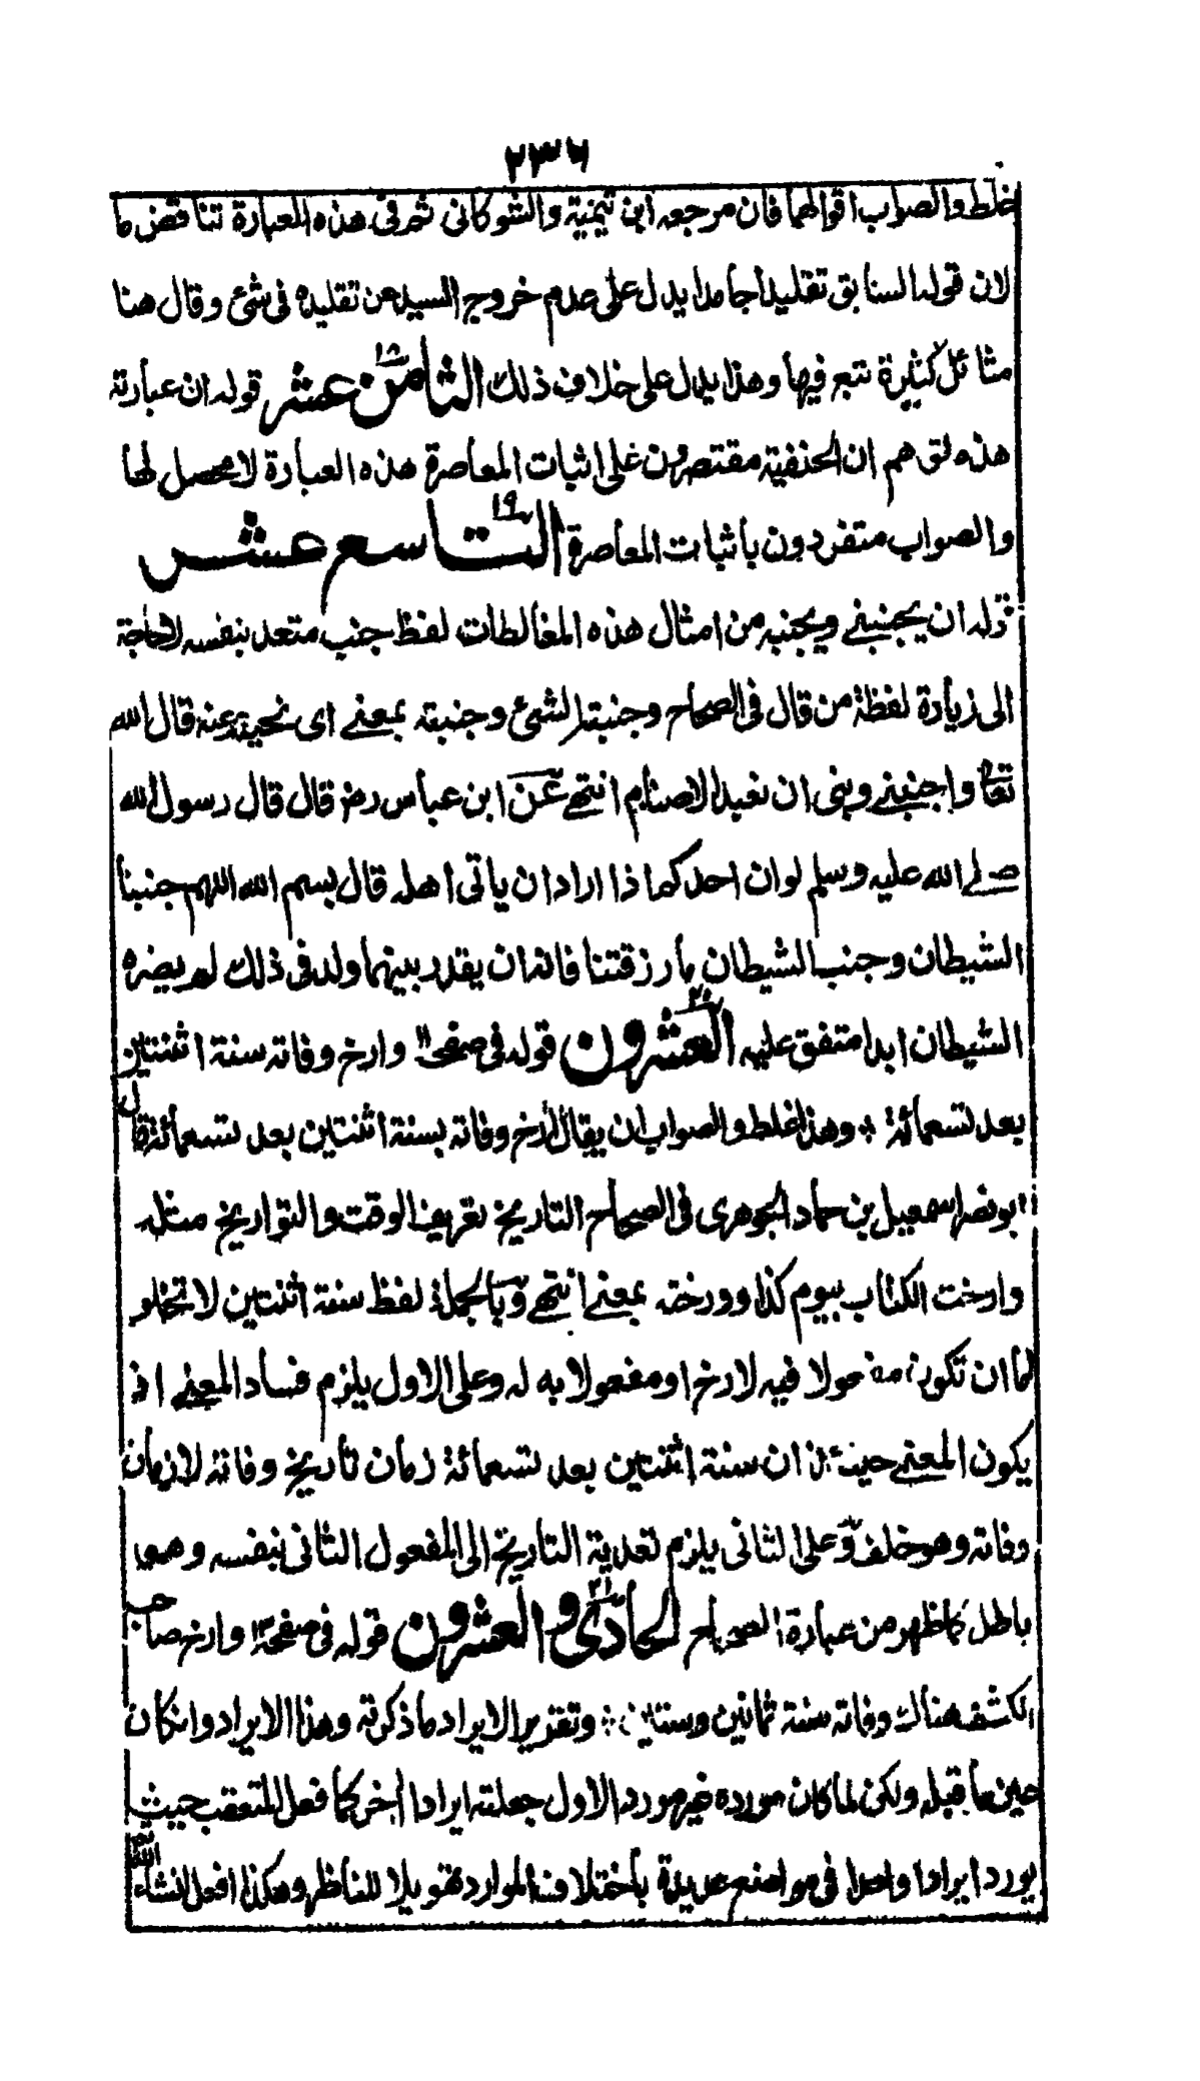 ٢٣٦
غلط والصواب اقوالهما فان مرجعه ابن تيمية والشوكانى ثم فى هذه العبارة تناقض ما
لان قوله السابق تقليدا جامدا يدل على عدم خروج السيد عن تقليده فى شئ وقال هنا
مثائل كثيرة نتبع فيها وهذا يدل على خلاف ذلك الثامن عشر ١٨ قوله ان عبارته
هذه توهم ان الحنفية مقتصرون على اثبات المعاصرة هذه العبارة لا محصل لها
والصواب متفردون باثبات المعاصرة التاسع عشر ١٩
قوله ان يجنبنے ويجنبه من امثال هذه المغالطات لفظ جنب متعد بنفسه لا حاجة
الى زيادة لفظة من قال فى الصحاح وجنبته الشئ وجنبته بمعنے اى نحيته عنه قال الله
تعا واجنبنے وبنى ان نعبد الاصنام انتهے عن ابن عباس رض قال قال رسول الله
صلے الله عليه وسلم لو ان احدكم اذا اراد ان ياتى اهله قال بسم الله اللهم جنبنا
الشيطان وجنب الشيطان ما رزقتنا فانه ان يقدر بينهما ولد فى ذلك لم يضره
الشيطان ابدا متفق عليه العشرون ٢٠ قوله فى صفحة ١١ وارخ وفاته سنة اثنتين
بعد تسعمائة ؞ وهذا غلط والصواب ان يقال ارخ وفاته بسنة اثنتين بعد تسعمائة قال
ابو نصر اسمعيل بن حماد الجوهرى فى الصحاح التاريخ تعريف الوقت والتواريخ مثله
وارخت الكتاب بيوم كذا وورخته بمعنے انتهے وبالجملة لفظ سنة اثنتين لا تخلو
اما ان تكون مفعولا فيه لارخ او مفعولا به له وعلى الاول يلزم فساد المعنے اذ
يكون المعنے حينئذ ان سنة اثنتين بعد تسعمائة زمان تاريخ وفاته لا زمان
وفاته وهو خلف وعلى الثانى يلزم تعدية التاريخ الى المفعول الثانى بنفسه وهو
باطل كما ظهر من عبارة الصحاح الحادى والعشرون ٢١ قوله فى صفحة ١٢ وارخ صاحب
الكشف هناك وفاته سنة ثمانين وستين ؞ وتقرير الايراد ما ذكرته وهذا الايراد وان كان
عين ما قبله ولكن لما كان مورده غير مورد الاول جعلته ايرادا اخر كما فعل المتعقب حيث
يورد ايرادا واحدا فى مواضع عديدة باختلاف الموارد تهويلا للناظر وهكذا افعل انشاء الله تع